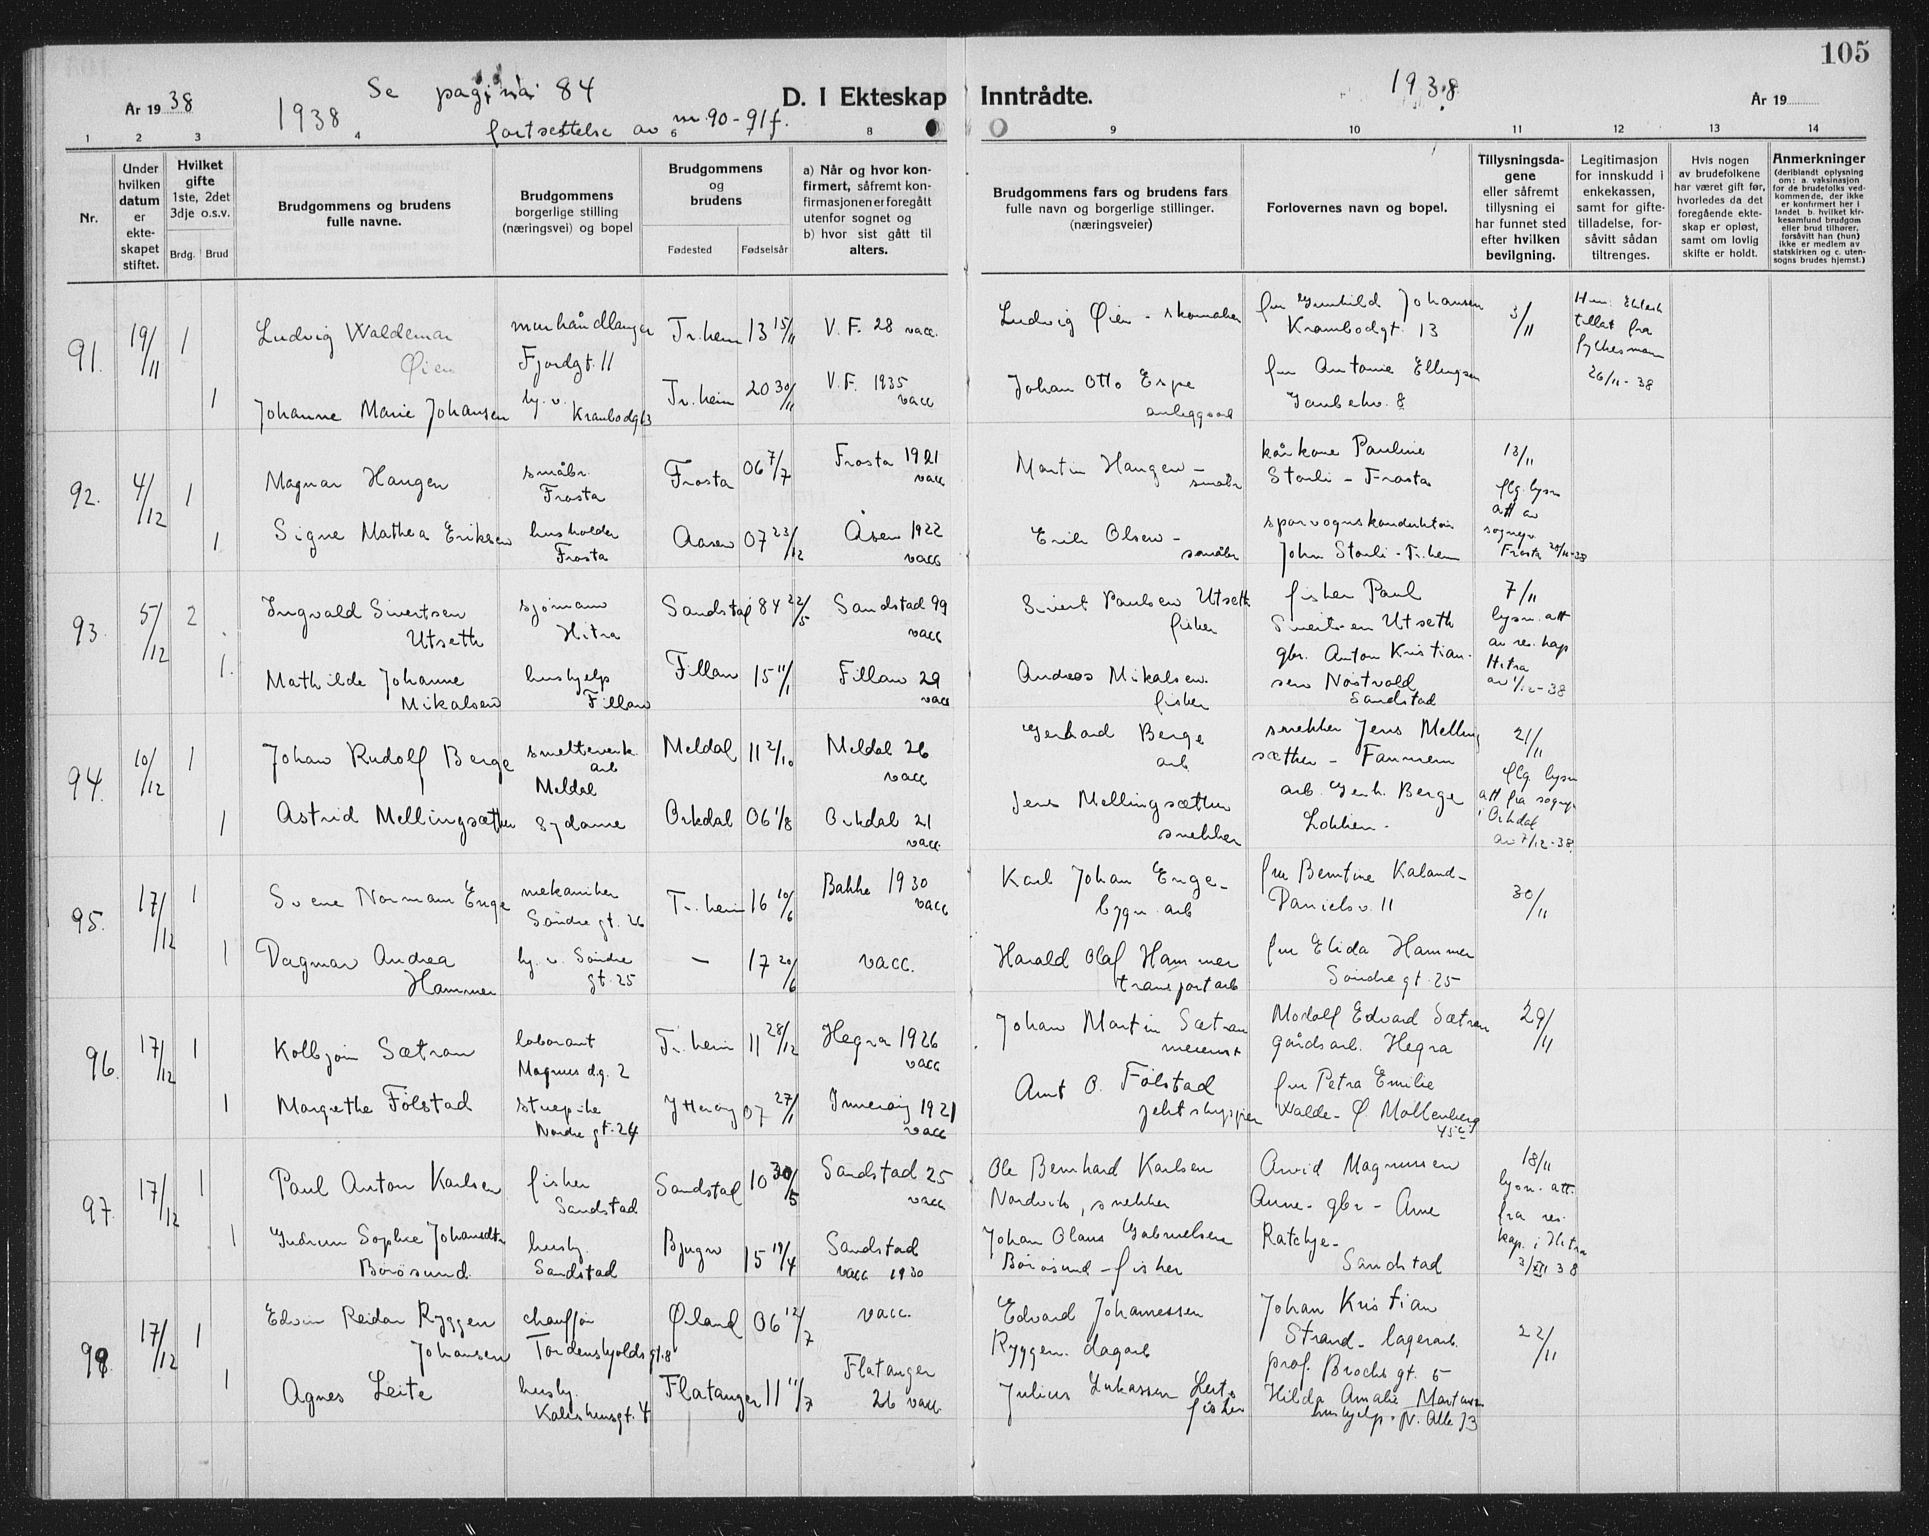 105
År 19 38
Se pagina 84
1938
fortsettelse av nr. 90-91 f.
D. I Ekteskap Inntrådte.
1938
År 19
1 2 3 4 6 8 9 10 11 12 13 14
Nr.
Under hvilken datum er ekte-skapet stiftet.
Hvilket gifte 1ste, 2det 3dje o.s.v.
Brdg. Brud
Brudgommens og brudens fulle navne.
Brudgommens borgerlige stilling (næringsvei) og bopel
Brudgommens og brudens
Fødested Fødselsår
a) Når og hvor kon-firmert, såfremt kon-firmasjonen er foregått utenfor sognet og b) hvor sist gått til alters.
Brudgommens fars og brudens fars fulle navn og borgerlige stillinger. (næringsveier)
Forlovernes navn og bopel.
Tillysningsda-gene eller såfremt tillysning ei har funnet sted efter hvilken bevilgning.
Legitimasjon for innskudd i enkekassen, samt for gifte-tilladelse, for-såvitt sådan tiltrenges.
Hvis nogen av brudefolkene har været gift før, hvorledes da det foregående ekte-skap er opløst, samt om lovlig skifte er holdt.
Anmerkninger (deriblandt oplysning om: a. vaksinasjon for de brudefolks ved-kommende, der ikke er konfirmert her i landet b. hvilket kir-kesamfund brudgom eller brud tilhører, forsåvitt han (hun) ikke er medlem av statskirken og c. uten-sogns brudes hjemst.)
91. 19/11 1 Ludvig Waldemar Øien murhåndlanger Fjordgt. 11 Tr.heim 13 15/11 V. F. 28 vacc. Ludvig Øien - skomaker fru Gunhild Johansen Krambodgt. 13 3/11
tillat fra fylkesmann 26/11-38
1 Johanne Marie Johansen hj. v. Krambodgt 13 Tr.heim 20 30/11 V. F. 1935 vacc Johan Otto Espe fru Antonie Ellingsen
92. 4/12 1 Magnar Haugen småbr. Frosta Frosta 06 7/7 Frosta 1921 vacc Martin Haugen - småbr kårkone Pauline Storli - Frosta 13/11
flg. lysn att av sognepr. Frosta 20/11-38
1 Signe Mathea Eriksen husholder Frosta Aasen 07 23/12 Åsen 1922 vacc Erik Olsen - småbr sporvognskonduktør John Storli - Tr.heim
93. 5/12 2 Ingvald Sivertsen Utseth sjømann Hitra Sandstad 84 22/5 Sandstad 99 vacc Sivert Paulsen Utseth fisker fisker Paul Sivertsen Utseth 7/11
lysn. att av res. kap Hitra av 1/12-38
1. Mathilde Johanne Mikalsen hushjelp Fillan Fillan 15 11/1 Fillan 29 vacc Andreas Mikalsen. fisker gbr. Anton Kristian-sen Nøstvold Sandstad
94. 10/12 1 Johan Rudolf Berge smelteverk. arb Meldal Meldal 11 2/10 Meldal 26 vacc Gerhard Berge arb snekker Jens Melling sæther - Fannrem 21/11
flg lysn att fra sognepr i Orkdal av 7/12-38
1 Astrid Mellingsæther sydame Orkdal 06 1/8 Orkdal 21 vacc. Jens Mellingsæther snekker arb. Gerh. Berge Løkken.
95. 17/12 1 Svene Norman Enge mekaniker Søndre gt. 26 Tr.heim 16 10/6 Bakke 1930 vacc Karl Johan Enge - bygn. arb fru Berntine Kaland - Danielsv. 11 30/11
1 Dagmar Andrea Hammer hj. v. Søndre gt. 25 - 17 20/6 vacc. Harald Olaf Hammer transportarb fru Elida Hammer Søndre gt. 25
96. 17/12 1 Kolbjørn Sætran laborant Magnus d.g. 2 Tr.heim 11 28/12 Hegra 1926 vacc Johan Martin Sætran Modolf Edvard Sætran gårdsarb. Hegra 29/11
1 Margrethe Følstad stuepike Nordre gt. 24 Ytterøy 07 27/11 Inderøy 1921 vacc Arnt O. Følstad jektskipper fru Petra Emilie Walde - Ø Møllenberg 45c
97. 17/12 1 Paul Anton Karlsen fisker Sandstad Sandstad 10 30/5 Sandstad 25 vacc Ole Bernhard Karlsen Nordvik, snekker Arvid Magnussen Aune - gbr - Aune 18/11
lysn. att. fra res. kap. i Hitra 3/XII 38
1 Gudrun Sophie Johansdtr Börösund hushj. Sandstad Bjugn 15 19/4 Sandstad vacc 1930 Johan Olaus Gabrielsen Börösund - fisker Ratchje - Sandstad
98. 17/12 1 Edvin Reidar Ryggen Johansen chauffør Tordenskjolds gt. 8 Ørland 06 12/7 vacc. Edvard Johannessen Ryggen. dagarb Johan Kristian Strand - lagerarb. prof. Brochs gt. 5 22/11
1 Agnes Leite hushj. Kalvskinnsgt. 4 Flatanger 11 11/7 Flatanger 26 vacc Julius Lukassen Leite fisker Hilda Amalie Martinsen hushjelp. N. Alle 13